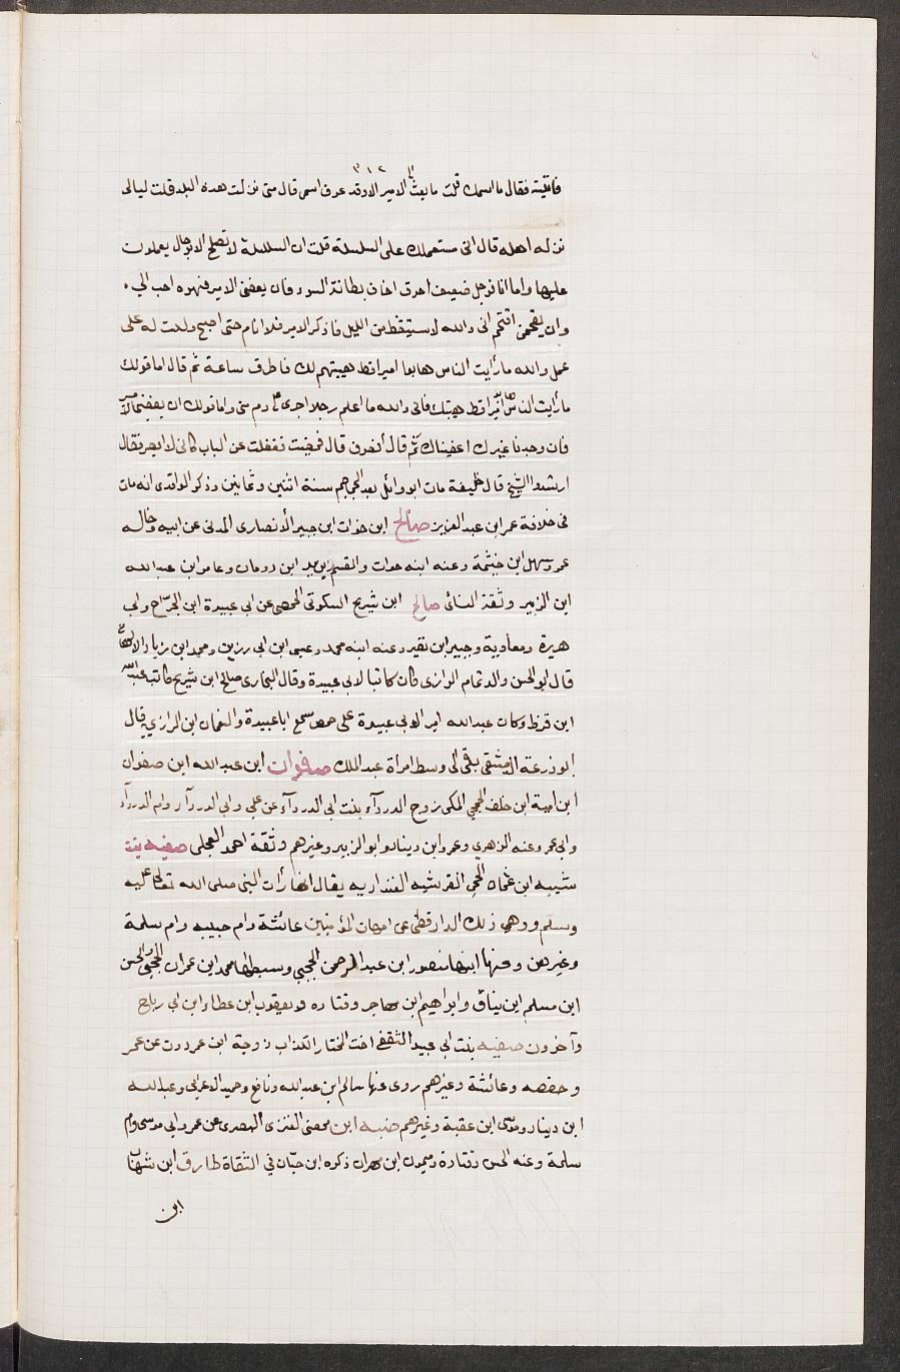 ٣١٢
فاتيته فقال ما اسمك قلت ما بعث الي الامير الا وقد عرف اسمي قال متى نزلت هذه البلد قلت ليالي
نزله اهله قال اني مستعملك على السلسلة قلت ان السلسلة لا تصلح الا برجال يعملون
عليها واما انا فرجل ضعيف اخرق اخاف بطانة السوء فان يعفني الامير فهو احب الي
وان يقحمني اقتحم اني والله لاستيقظ من الليل فاذكر الامير فلا انام حتى اصبح ولست له على
عمل والله ما رأيت الناس هابوا اميرا قط هيبتهم لك فاطرق ساعة ثم قال اما قولك
ما رأيت الناس هابوا اميرا قط هيبتك فاني والله ما اعلم رجلا اجرى على دم مني واما قولك ان يعفني الامير
فان وجدنا غيرك اعفيناك ثم قال انصرف قال فمضيت فغفلت عن الباب كاني لا ابصر فقال
ارشدوا الشيخ قال خليفة مات ابو وائل بعد الجماجم سنة اثنين وثمانين وذكر الواقدي انه مات
في خلافة عمر ابن عبد العزيز صالح ابن خوات ابن جبير الأنصاري المدني عن ابيه وخاله
عمر وسهل ابن خيثمة وعنه ابنه خوات والقسم ويزيد ابن رومان وعامر ابن عبد الله
ابن الزبير وثقة النسائي صالح ابن شريح السكوتي الحمصي عن ابي عبيدة ابن الجراح وابي
هيرة ومعاوية وجبير ابن نقير وعنه ابنه محمد وعيسى ابن ابي رزين ومحمد ابن زياد الالهاني
قال ابو الحسن والد تمام الرازي كان كاتبا لابي عبيدة وقال البخاري صالح ابن شريح كاتب عبد الله
ابن قرظ وكان عبد الله امير لابي عبيدة على حمص سمع ابا عبيدة والنعمان ابن الرازي قال
ابو زرعة الدمشقي بقى الى وسط امراة عبد الملك صفوان ابن عبد الله ابن صفوان
ابن امية ابن خلف الجمحي المكي زوج الدرداء بنت ابي الدرداء عن علي وابي الدرداء وام الدرداء
وابن عمر وعنه الزهري وعمرو ابن دينار وابو الزبير وغيرهم وثقة احمد العجلي صفيه بنت
شيبه ابن عثمان الحجبي القرشيه العبداريه يقال انها رأت النبي صلى الله تعالى عليه
وسلم ووهى ذلك الدارقطني عن امهات المؤمنين عائشة وام حبيبه وام سلمة
وغيرهن وعنها ابنها منصور ابن عبد الرحمن الحجبي وسبطها محمد ابن عمران الحجبي والحسن
ابن مسلم ابن يناق وابراهيم ابن مهاجر وقتاده ويعقوب ابن عطاء ابن ابي رباح
وآخرون صفيه بنت ابي عبيد الثقفي اخت المختار الكذاب زوجة ابن عمر روت عن عمر
وحفصه وعائشة وغيرهم روى عنها سالم ابن عبد الله ونافع وحميد الاعرابي وعبد الله
ابن دينار وموسى ابن عقبة وغيرهم ضبه ابن محصن العنزي البصري عن عمر وابي موسى وام
سلمة وعنه الحسن وقتادة وميمون ابن مهران ذكره ابن حبان في الثقاة طارق ابن شهاب
ابن